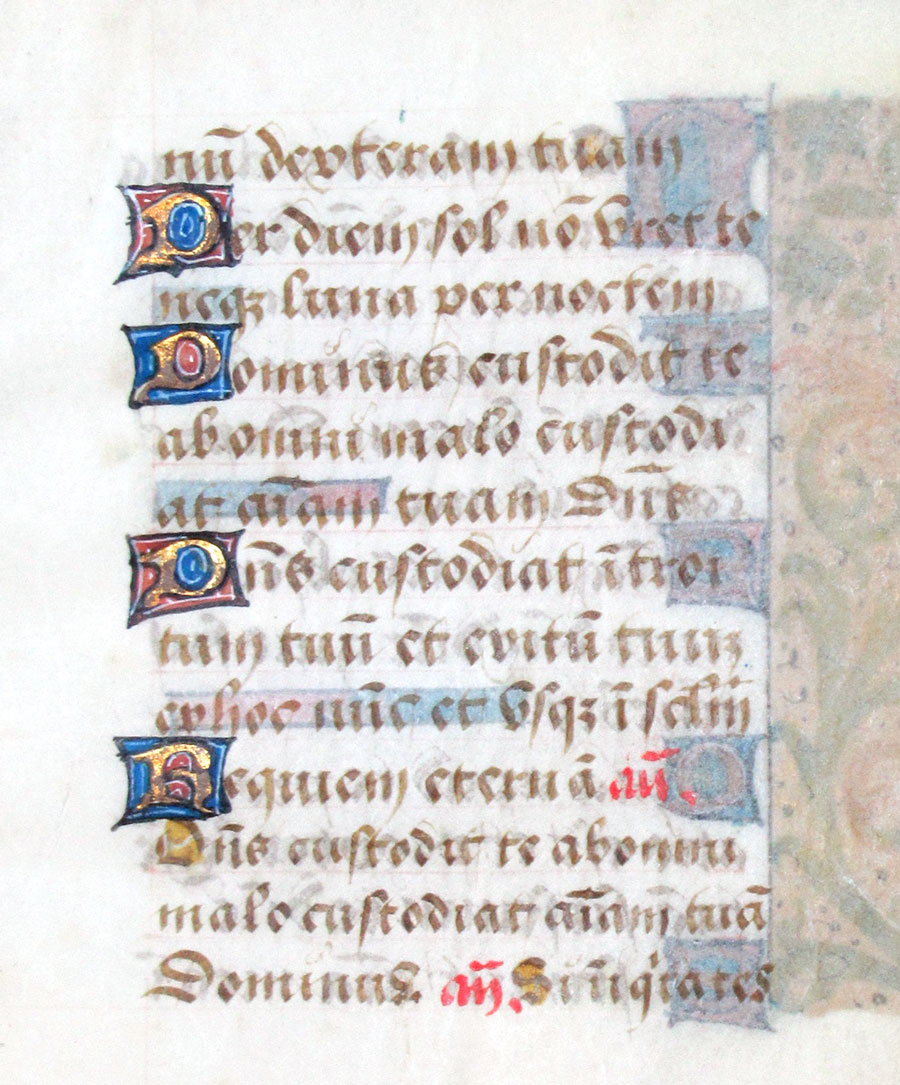 nū dexteram tuam
Per diem sol nō vret te
neqꝫ luna per noctem
Dominus custodit te
ab omni malo custodi
at aīam tuam Dn̄s
Dn̄s custodiat ītroi
tum tuū et exitū tuū
ex hoc nūc et vsqꝫ ī sclm̄
Requiem eternā an̄.
Dn̄s custodit te ab omni
malo custodiat aīam tuā
Dominus. an̄. Si iniq̇tates